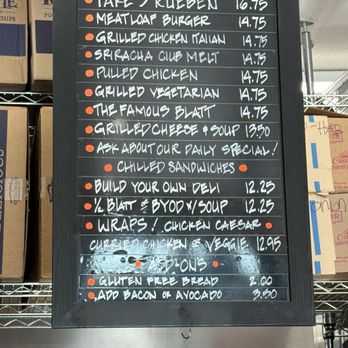 REUBEN 16.75
MEATLOAF BURGER 14.75
GRILLED CHICKEN ITALIAN 14.75
SRIRACHA CLUB MELT 14.75
PULLED CHICKEN 14.75
GRILLED VEGETARIAN 14.75
THE FAMOUS BLATT 14.75
GRILLED CHEESE & SOUP 13.50
ASK ABOUT OUR DAILY SPECIAL!
CHILLED SANDWICHES
BUILD YOUR OWN DELI 12.25
½ BLATT or BYOD w/ SOUP 12.25
WRAPS! CHICKEN CAESAR
CURRIED CHICKEN or VEGGIE 12.95
ADD-ONS
GLUTEN FREE BREAD 2.00
ADD BACON or AVOCADO 3.50